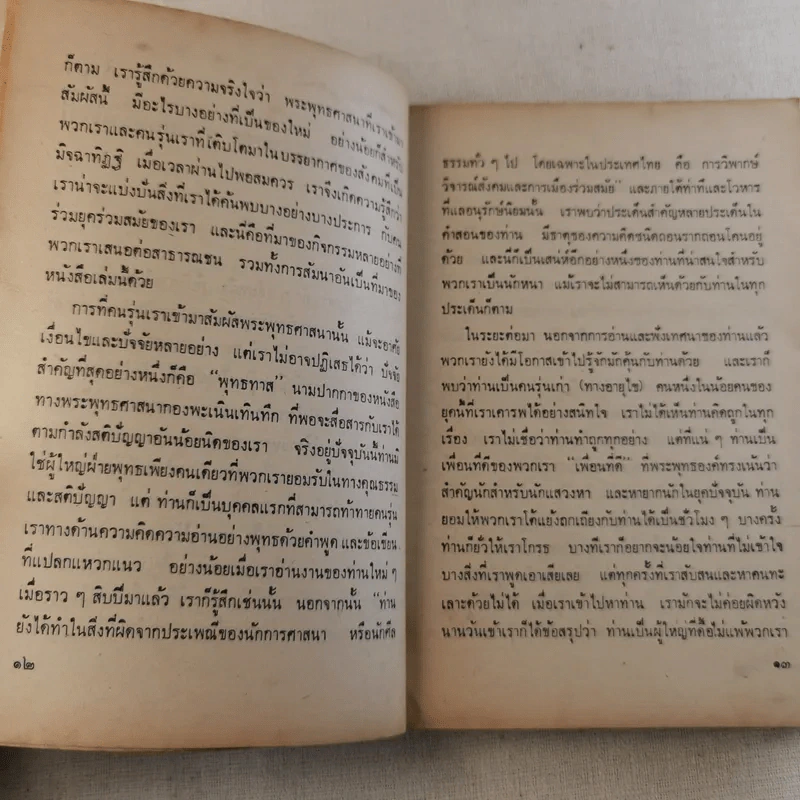 ก็ตาม เรารู้สึกด้วยความจริงใจว่า พระพุทธศาสนาที่เราเข้ามา
สัมผัสนี้ มีอะไรบางอย่างที่เป็นของใหม่ อย่างน้อยก็สำหรับ
พวกเราและคนรุ่นเราที่เติบโตมาในบรรยากาศของสังคมที่เป็น
มิจฉาทิฏฐิ เมื่อเวลาผ่านไปพอสมควร เราจึงเกิดความรู้สึกว่า
เราน่าจะแบ่งปันสิ่งที่เราได้ค้นพบบางอย่างบางประการ กับคน
ร่วมยุคร่วมสมัยของเรา และนี่คือที่มาของกิจกรรมหลายอย่างที่
พวกเราเสนอต่อสาธารณชน รวมทั้งการสัมนาอันเป็นที่มาของ
หนังสือเล่มนี้ด้วย
การที่คนรุ่นเราเข้ามาสัมผัสพระพุทธศาสนานั้น แม้จะอาศัย
เงื่อนไขและปัจจัยหลายอย่าง แต่เราไม่อาจปฏิเสธได้ว่า ปัจจัย
สำคัญที่สุดอย่างหนึ่งก็คือ “พุทธทาส” นามปากกาของหนังสือ
ทางพระพุทธศาสนากองพะเนินเทินทึก ที่พอจะสื่อสารกับเราได้
ตามกำลังสติปัญญาอันน้อยนิดของเรา จริงอยู่ปัจจุบันนี้ท่านมิ
ใช่ผู้ใหญ่ฝ่ายพุทธเพียงคนเดียวที่พวกเรายอมรับในทางคุณธรรม
และสติปัญญา แต่ ท่านก็เป็นบุคคลแรกที่สามารถท้าทายคนรุ่น
เราทางด้านความคิดความอ่านอย่างพุทธด้วยคำพูด และข้อเขียน
ที่แปลกแหวกแนว อย่างน้อยเมื่อเราอ่านงานของท่านใหม่ ๆ
เมื่อราว ๆ สิบปีมาแล้ว เราก็รู้สึกเช่นนั้น นอกจากนั้น “ท่าน
ยังได้ทำในสิ่งที่ผิดจากประเพณีของนักการศาสนา หรือนักศีล
๑๒
ธรรมทั่ว ๆ ไป โดยเฉพาะในประเทศไทย คือ การวิพากษ์
วิจารณ์สังคมและการเมืองร่วมสมัย” และภายใต้ท่าทีและโวหาร
ที่แลอนุรักษ์นิยมนั้น เราพบว่าประเด็นสำคัญหลายประเด็นใน
คำสอนของท่าน มีธาตุของความคิดชนิดถอนรากถอนโคนอยู่
ด้วย และนี่ก็เป็นเสน่ห์อีกอย่างหนึ่งของท่านที่น่าสนใจสำหรับ
พวกเราเป็นนักหนา แม้เราจะไม่สามารถเห็นด้วยกับท่านในทุก
ประเด็นก็ตาม
ในระยะต่อมา นอกจากการอ่านและฟังเทศนาของท่านแล้ว
พวกเรายังได้มีโอกาสเข้าไปรู้จักมักคุ้นกับท่านด้วย และเราก็
พบว่าท่านเป็นคนรุ่นเก่า (ทางอายุไข) คนหนึ่งในน้อยคนของ
ยุคนี้ที่เราเคารพได้อย่างสนิทใจ เราไม่ได้เห็นท่านคิดถูกในทุก
เรื่อง เราไม่เชื่อว่าท่านทำถูกทุกอย่าง แต่ที่แน่ ๆ ท่านเป็น
เพื่อนที่ดีของพวกเรา “เพื่อนที่ดี” ที่พระพุทธองค์ทรงเน้นว่า
สำคัญนักสำหรับนักแสวงหา และหายากนักในยุคปัจจุบัน ท่าน
ยอมให้พวกเราโต้แย้งถกเถียงกับท่านได้เป็นชั่วโมง ๆ บางครั้ง
ท่านก็ยั่วให้เราโกรธ บางทีเราก็อยากจะน้อยใจท่านที่ไม่เข้าใจ
บางสิ่งที่เราพูดเอาเสียเลย แต่ทุกครั้งที่เราสับสนและหาคนทะ
เลาะด้วยไม่ได้ เมื่อเราเข้าไปหาท่าน เรามักจะไม่ค่อยผิดหวัง
นานวันเข้าเราก็ได้ข้อสรุปว่า ท่านเป็นผู้ใหญ่ที่ดื้อไม่แพ้พวกเรา
๑๓